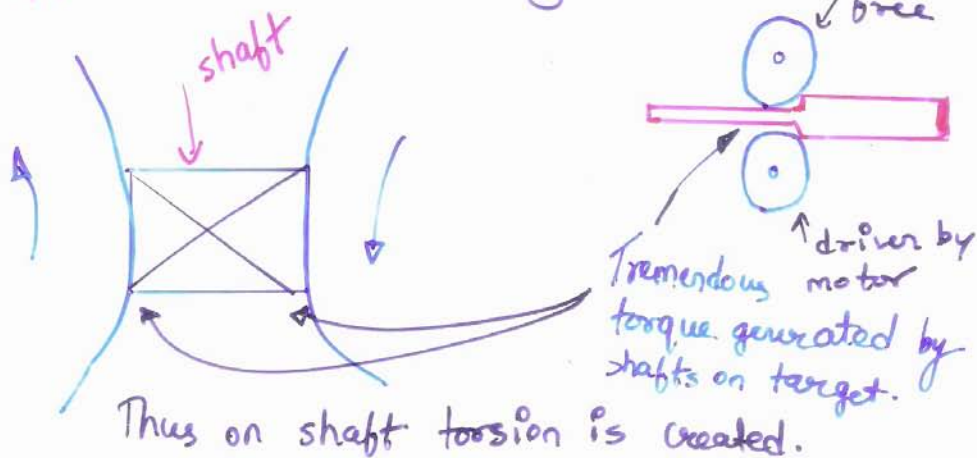 shaft
force
driven by
motor
Tremendous
torque generated by
shafts on target.
Thus on shaft torsion is created.